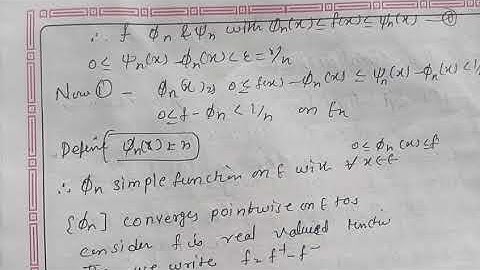 ∴ f φn & ψn with φn(x) ≤ f(x) ≤ ψn(x) —
0 < ψn(x) - φn(x) < ε = 1/n
Now ① - φn(x) is 0 ≤ f(x) - φn(x) ≤ ψn(x) - φn(x) < 1/
0 ≤ f - φn < 1/n on En
Define φn(x) = n
∴ φn simple function on E with 0 ≤ φn(x) ≤ f ∀ x ∈ E
{φn} converges pointwise on E to
consider f is real valued
we write f = f⁺ - f⁻